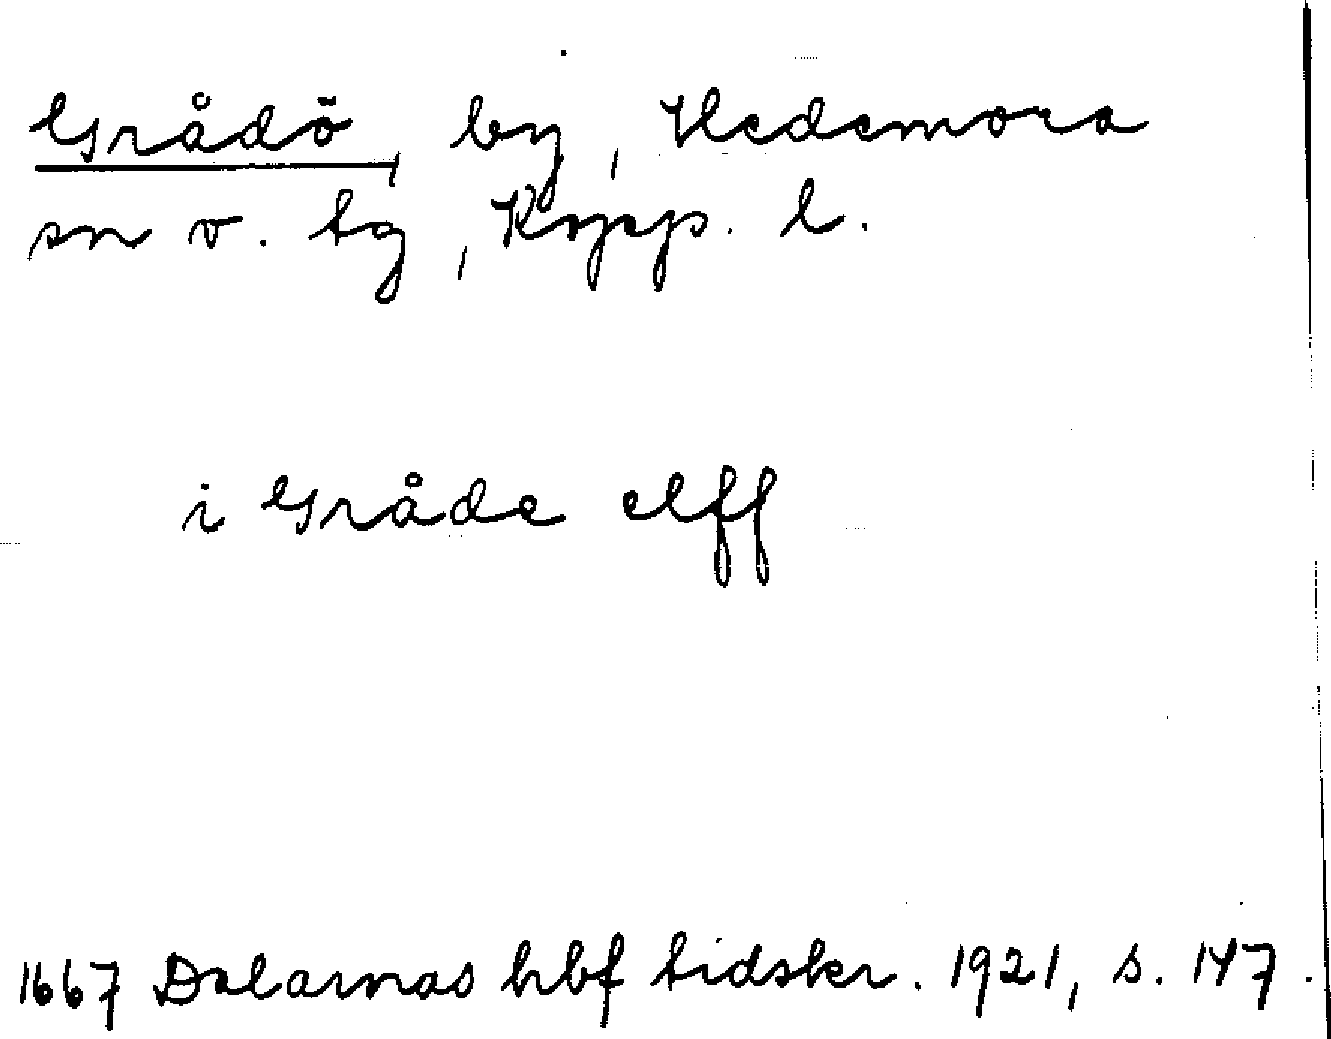 Grådö, by, Hedemora
sn o. tg, Kopp. l.
i Gråde elff
1667 Dalarnas hbf tidskr. 1921, s. 147.